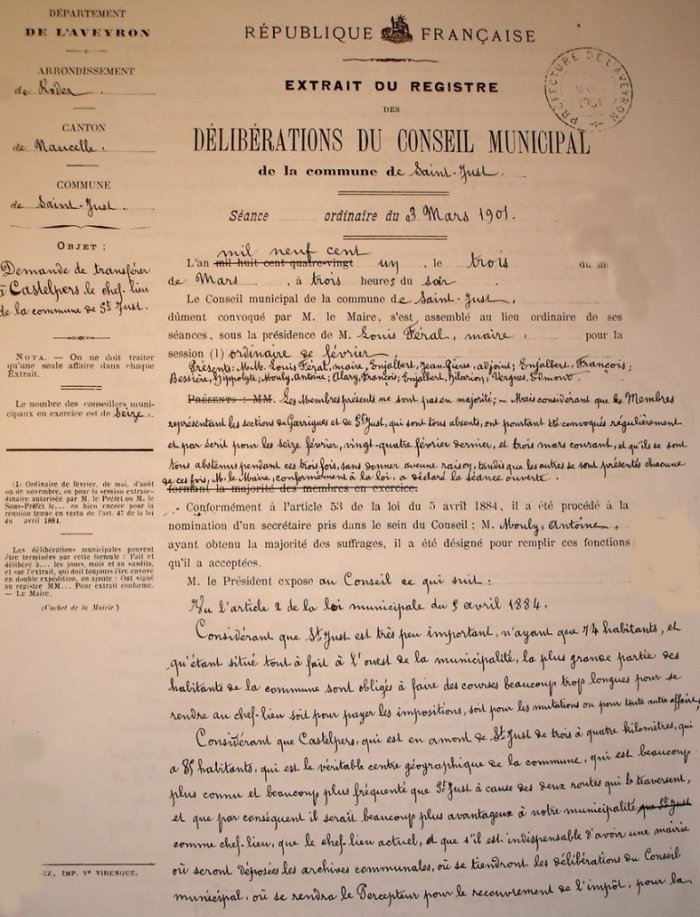 DÉPARTEMENT
DE L'AVEYRON
ARRONDISSEMENT
de Rodez
CANTON
de Naucelle.
COMMUNE
de Saint-Just
OBJET :
Demande de transférer
à Castelpers le chef-lieu
de la commune de St Just.
NOTA. — On ne doit traiter
qu'une seule affaire dans chaque
Extrait.
Le nombre des conseillers muni-
cipaux en exercice est de Seize.
(1) Ordinaire de février, de mai, d'août
ou de novembre, ou pour la session extraor-
dinaire autorisée par M. le Préfet ou M. le
Sous-Préfet le... ou bien encore pour la
réunion tenue en vertu de l'art. 47 de la loi
du avril 1884.
Les délibérations municipales peuvent
être terminées par cette formule : Fait et
délibéré à... les jours, mois et an susdits,
et sur l'extrait, qui doit toujours être envoyé
en double expédition, on ajoute : Ont signé
au registre MM... Pour extrait conforme.
— Le Maire.
(Cachet de la Mairie)
EZ, IMP. Ve VIRENQUE.
RÉPUBLIQUE FRANÇAISE
PRÉFECTURE DE L'AVEYRON
1901
EXTRAIT DU REGISTRE
DES
DÉLIBÉRATIONS DU CONSEIL MUNICIPAL
de la commune de Saint-Just.
Séance ordinaire du 3 Mars 1901.
mil neuf cent
L'an mil huit cent quatre-vingt un, le trois du m
de Mars, à trois heures du soir
Le Conseil municipal de la commune de Saint-Just,
dûment convoqué par M. le Maire, s'est assemblé au lieu ordinaire de ses
séances, sous la présidence de M. Louis Féral, maire, pour la
session (1) ordinaire de février.
Présents: M.M. Louis Féral, maire, Enjalbert, Jean-Pierre, adjoint; Enjalbert, François;
Bessière, Hippolyte; Mouly, Antoine; Alary, François; Enjalbert, Hilarion; Vergnes, Edmond.
PRÉSENTS : MM. Les Membres présents ne sont pas en majorité; — Mais considérant que les Membres
représentant les sections de Garrigues et de St Just, qui sont tous absents, ont pourtant été convoqués régulièrement
et par écrit pour les seize février, vingt-quatre février dernier, et trois mars courant, et qu'ils se sont
tous abstenus pendant ces trois fois, sans donner aucune raison, tandis que les autres se sont présentés chacune
de ces fois, M. le Maire, conformément à la loi, a déclaré la séance ouverte.
formant la majorité des membres en exercice.
Conformément à l'article 53 de la loi du 5 avril 1884, il a été procédé à la
nomination d'un secrétaire pris dans le sein du Conseil ; M. Mouly, Antoine,
ayant obtenu la majorité des suffrages, il a été désigné pour remplir ces fonctions
qu'il a acceptées.
M. le Président expose au Conseil ce qui suit :
Vu l'article 2 de la loi municipale du 5 avril 1884.
Considérant que St Just est très peu important, n'ayant que 74 habitants, et
qu'étant situé tout à fait à l'ouest de la municipalité, la plus grande partie des
habitants de la commune sont obligés à faire des courses beaucoup trop longues pour se
rendre au chef-lieu soit pour payer les impositions, soit pour les mutations ou pour toute autre affaire;
Considérant que Castelpers, qui est en amont de St Just de trois à quatre kilomètres, qui
a 85 habitants, qui est le véritable centre géographique de la commune, qui est beaucoup
plus connu et beaucoup plus fréquenté que St Just à cause des deux routes qui le traversent,
et que par conséquent il serait beaucoup plus avantageux à notre municipalité que St Just
comme chef-lieu, que le chef-lieu actuel, et que s'il est indispensable d'avoir une mairie
où seront déposées les archives communales, où se tiendront les délibérations du Conseil
municipal, où se rendra le Percepteur pour le recouvrement de l'impôt, pour la